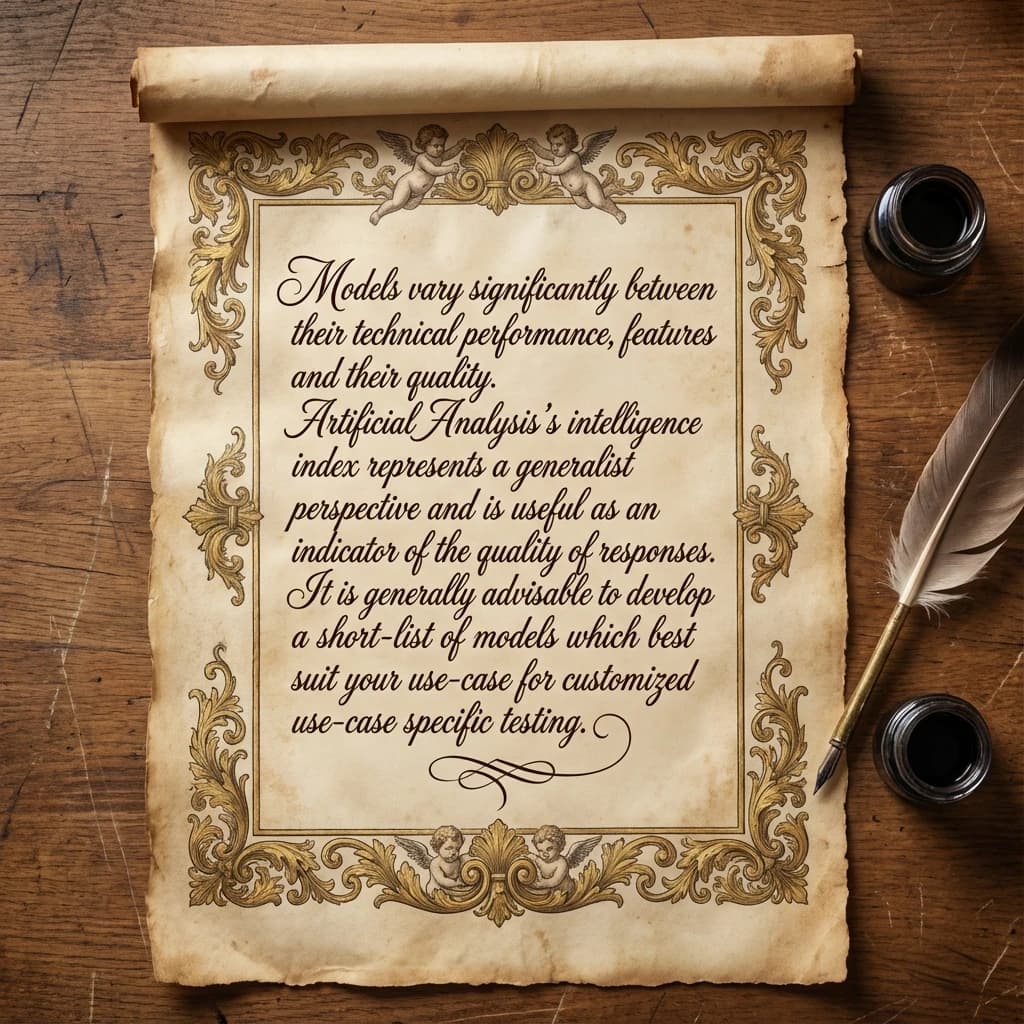 Models vary significantly between
their technical performance, features
and their quality.
Artificial Analysis's intelligence
index represents a generalist
perspective and is useful as an
indicator of the quality of responses.
It is generally advisable to develop
a short-list of models which best
suit your use-case for customized
use-case specific testing.